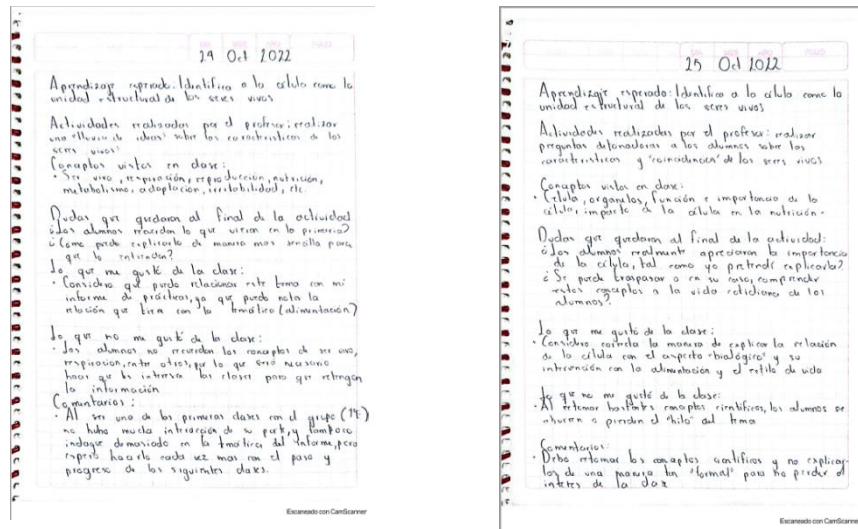 24 Oct 2022
Aprendizaje esperado: Identifica a la célula como la
unidad estructural de los seres vivos
Actividades realizadas por el profesor: realizar
una "lluvia de ideas" sobre las características de los
seres vivos
Conceptos vistos en clase:
• Ser vivo, respiración, reproducción, nutrición,
metabolismo, adaptación, irritabilidad, etc.
Dudas que quedaron al final de la actividad
¿Los alumnos recuerdan lo que vieron en la primaria?
¿Cómo puedo explicarlo de manera mas sencilla para
que lo entiendan?
Lo que me gustó de la clase:
• Considero que puedo relacionar este tema con mi
informe de prácticas, ya que puedo notar la
relación que tiene con la temática (alimentación)
Lo que no me gustó de la clase:
• Los alumnos no recuerdan los conceptos de ser vivo,
respiración, entre otros, por lo que será necesario
hacer que les interesen las clases para que retengan
la información
Comentarios:
• Al ser una de las primeras clases con el grupo (1°E)
no hubo mucha interacción de su parte, y tampoco
indague demasiado en la temática del informe, pero
espero hacerlo cada vez mas con el paso y
progreso de las siguientes clases.
Escaneado con CamScanner
25 Oct 2022
Aprendizaje esperado: Identifica a la célula como la
unidad estructural de los seres vivos
Actividades realizadas por el profesor: realizar
preguntas detonadoras a los alumnos sobre las
características y "coincidencias" de los seres vivos
Conceptos vistos en clase:
• Célula, organelos, función e importancia de la
célula, impacto de la célula en la nutrición.
Dudas que quedaron al final de la actividad:
¿Los alumnos realmente apreciaron la importancia
de la célula, tal como yo pretendí explicarla?
¿Se puede traspasar o en su caso, comprender
estos conceptos a la vida cotidiana de los
alumnos?
Lo que me gustó de la clase:
• Considero correcta la manera de explicar la relación
de la célula con el aspecto "biológico" y su
intervención con la alimentación y el estilo de vida
Lo que no me gustó de la clase:
• Al retomar bastantes conceptos científicos, los alumnos se
aburren o pierden el "hilo" del tema
Comentarios:
• Debo retomar los conceptos científicos y no explicar-
los de una manera tan "formal" para no perder el
interés de la clase
Escaneado con CamScanner